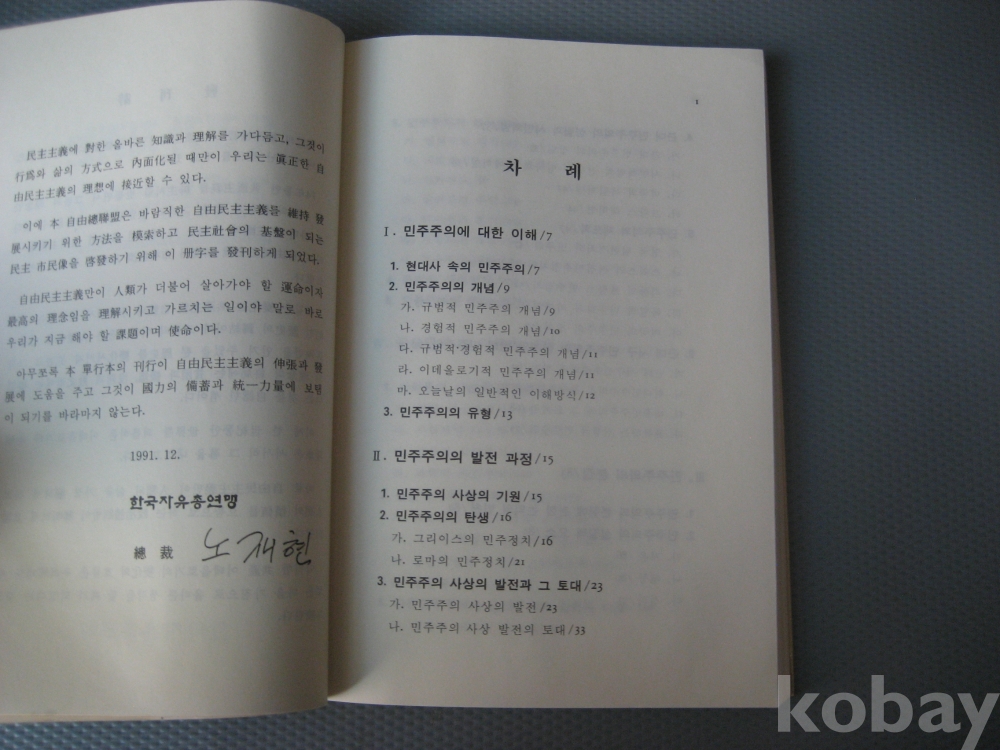 民主主義에 對한 올바른 知識과 理解를 가다듬고, 그것이
行爲와 삶의 方式으로 內面化될 때만이 우리는 眞正한 自
由民主主義의 理想에 接近할 수 있다.
이에 本 自由總聯盟은 바람직한 自由民主主義를 維持 發
展시키기 위한 方法을 模索하고 民主社會의 基盤이 되는
民主 市民像을 啓發하기 위해 이 册字를 發刊하게 되었다.
自由民主主義만이 人類가 더불어 살아가야 할 運命이자
最高의 理念임을 理解시키고 가르치는 일이야 말로 바로
우리가 지금 해야 할 課題이며 使命이다.
아무쪼록 本 單行本의 刊行이 自由民主主義의 伸張과 發
展에 도움을 주고 그것이 國力의 備蓄과 統一力量에 보탬
이 되기를 바라마지 않는다.
1991. 12.
한국자유총연맹
總 裁 노재현
1
차 례
Ⅰ. 민주주의에 대한 이해/7
1. 현대사 속의 민주주의/7
2. 민주주의의 개념/9
가. 규범적 민주주의 개념/9
나. 경험적 민주주의 개념/10
다. 규범적·경험적 민주주의 개념/11
라. 이데올로기적 민주주의 개념/11
마. 오늘날의 일반적인 이해방식/12
3. 민주주의의 유형/13
Ⅱ. 민주주의의 발전 과정/15
1. 민주주의 사상의 기원/15
2. 민주주의의 탄생/16
가. 그리이스의 민주정치/16
나. 로마의 민주정치/21
3. 민주주의 사상의 발전과 그 토대/23
가. 민주주의 사상의 발전/23
나. 민주주의 사상 발전의 토대/33
kobay